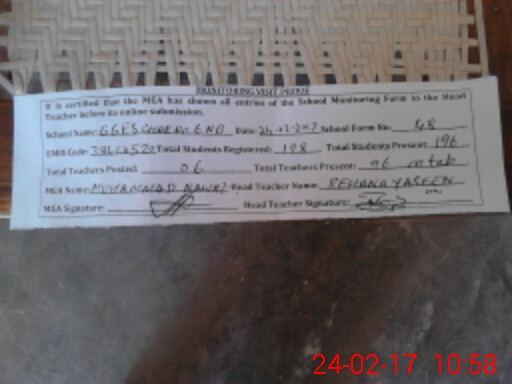 MONITORING VISIT PROOF
It is certified that the MEA has shown all entries of the School Monitoring Form to the Head
Teacher before its online submission.
School Name: GGES Date: School Form No:
EMIS Code: Total Students Registered: 198 Total Students Present: 196
Total Teachers Posted: 06 Total Teachers Present: 06
MEA Name: MUHAMMAD NAWAZ Head Teacher Name: REHANA YASEEN
MEA Signature: Head Teacher Signature:
24-02-17 10:58